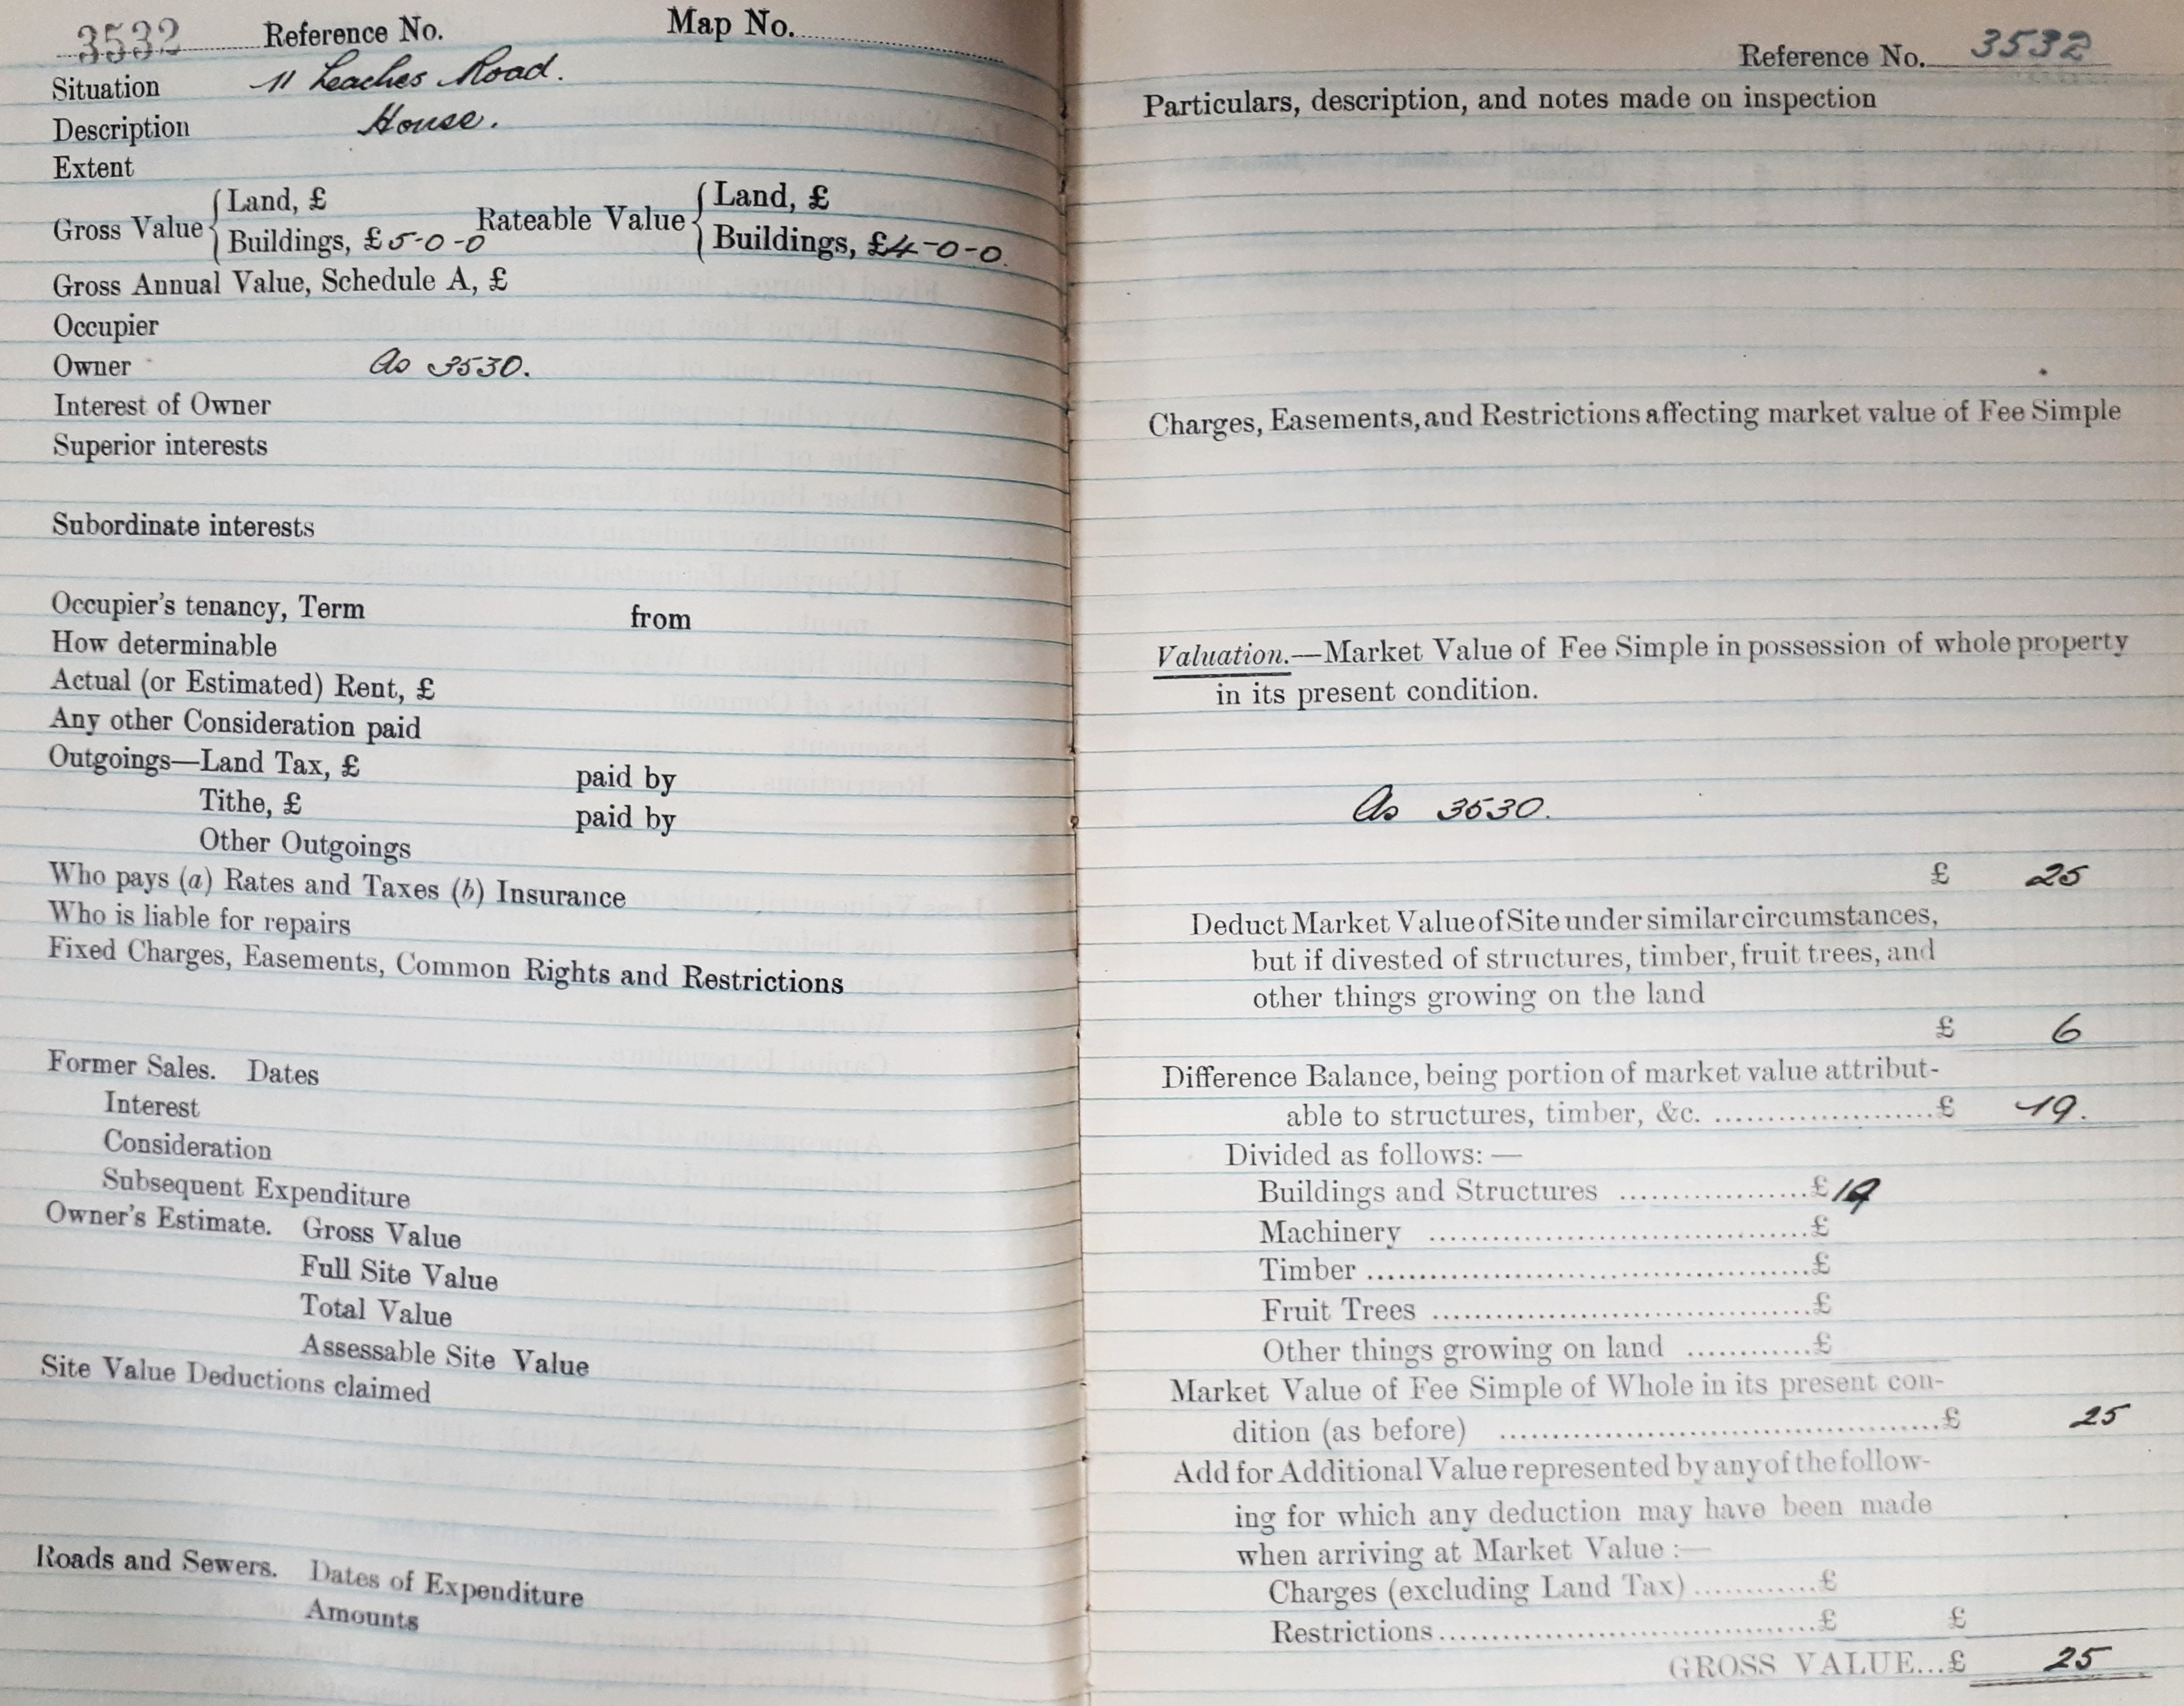 3532 Reference No. Map No.
Situation 11 Leaches Road.
Description House.
Extent
Gross Value { Land, £
Buildings, £5-0-0 Rateable Value { Land, £
Buildings, £4-0-0.
Gross Annual Value, Schedule A, £
Occupier
Owner As 3530.
Interest of Owner
Superior interests
Subordinate interests
Occupier's tenancy, Term from
How determinable
Actual (or Estimated) Rent, £
Any other Consideration paid
Outgoings—Land Tax, £ paid by
Tithe, £ paid by
Other Outgoings
Who pays (a) Rates and Taxes (b) Insurance
Who is liable for repairs
Fixed Charges, Easements, Common Rights and Restrictions
Former Sales. Dates
Interest
Consideration
Subsequent Expenditure
Owner's Estimate. Gross Value
Full Site Value
Total Value
Assessable Site Value
Site Value Deductions claimed
Roads and Sewers. Dates of Expenditure
Amounts
Reference No. 3532
Particulars, description, and notes made on inspection
Charges, Easements, and Restrictions affecting market value of Fee Simple
Valuation.—Market Value of Fee Simple in possession of whole property
in its present condition.
As 3530.
£ 25
Deduct Market Value of Site under similar circumstances,
but if divested of structures, timber, fruit trees, and
other things growing on the land
£ 6
Difference Balance, being portion of market value attribut-
able to structures, timber, &c. ....................£ 19.
Divided as follows: —
Buildings and Structures ..................£19
Machinery ..................£
Timber ..................£
Fruit Trees ..................£
Other things growing on land ............£
Market Value of Fee Simple of Whole in its present con-
dition (as before) ..................£ 25
Add for Additional Value represented by any of the follow-
ing for which any deduction may have been made
when arriving at Market Value :—
Charges (excluding Land Tax)............£
Restrictions..................£ £
GROSS VALUE...£ 25